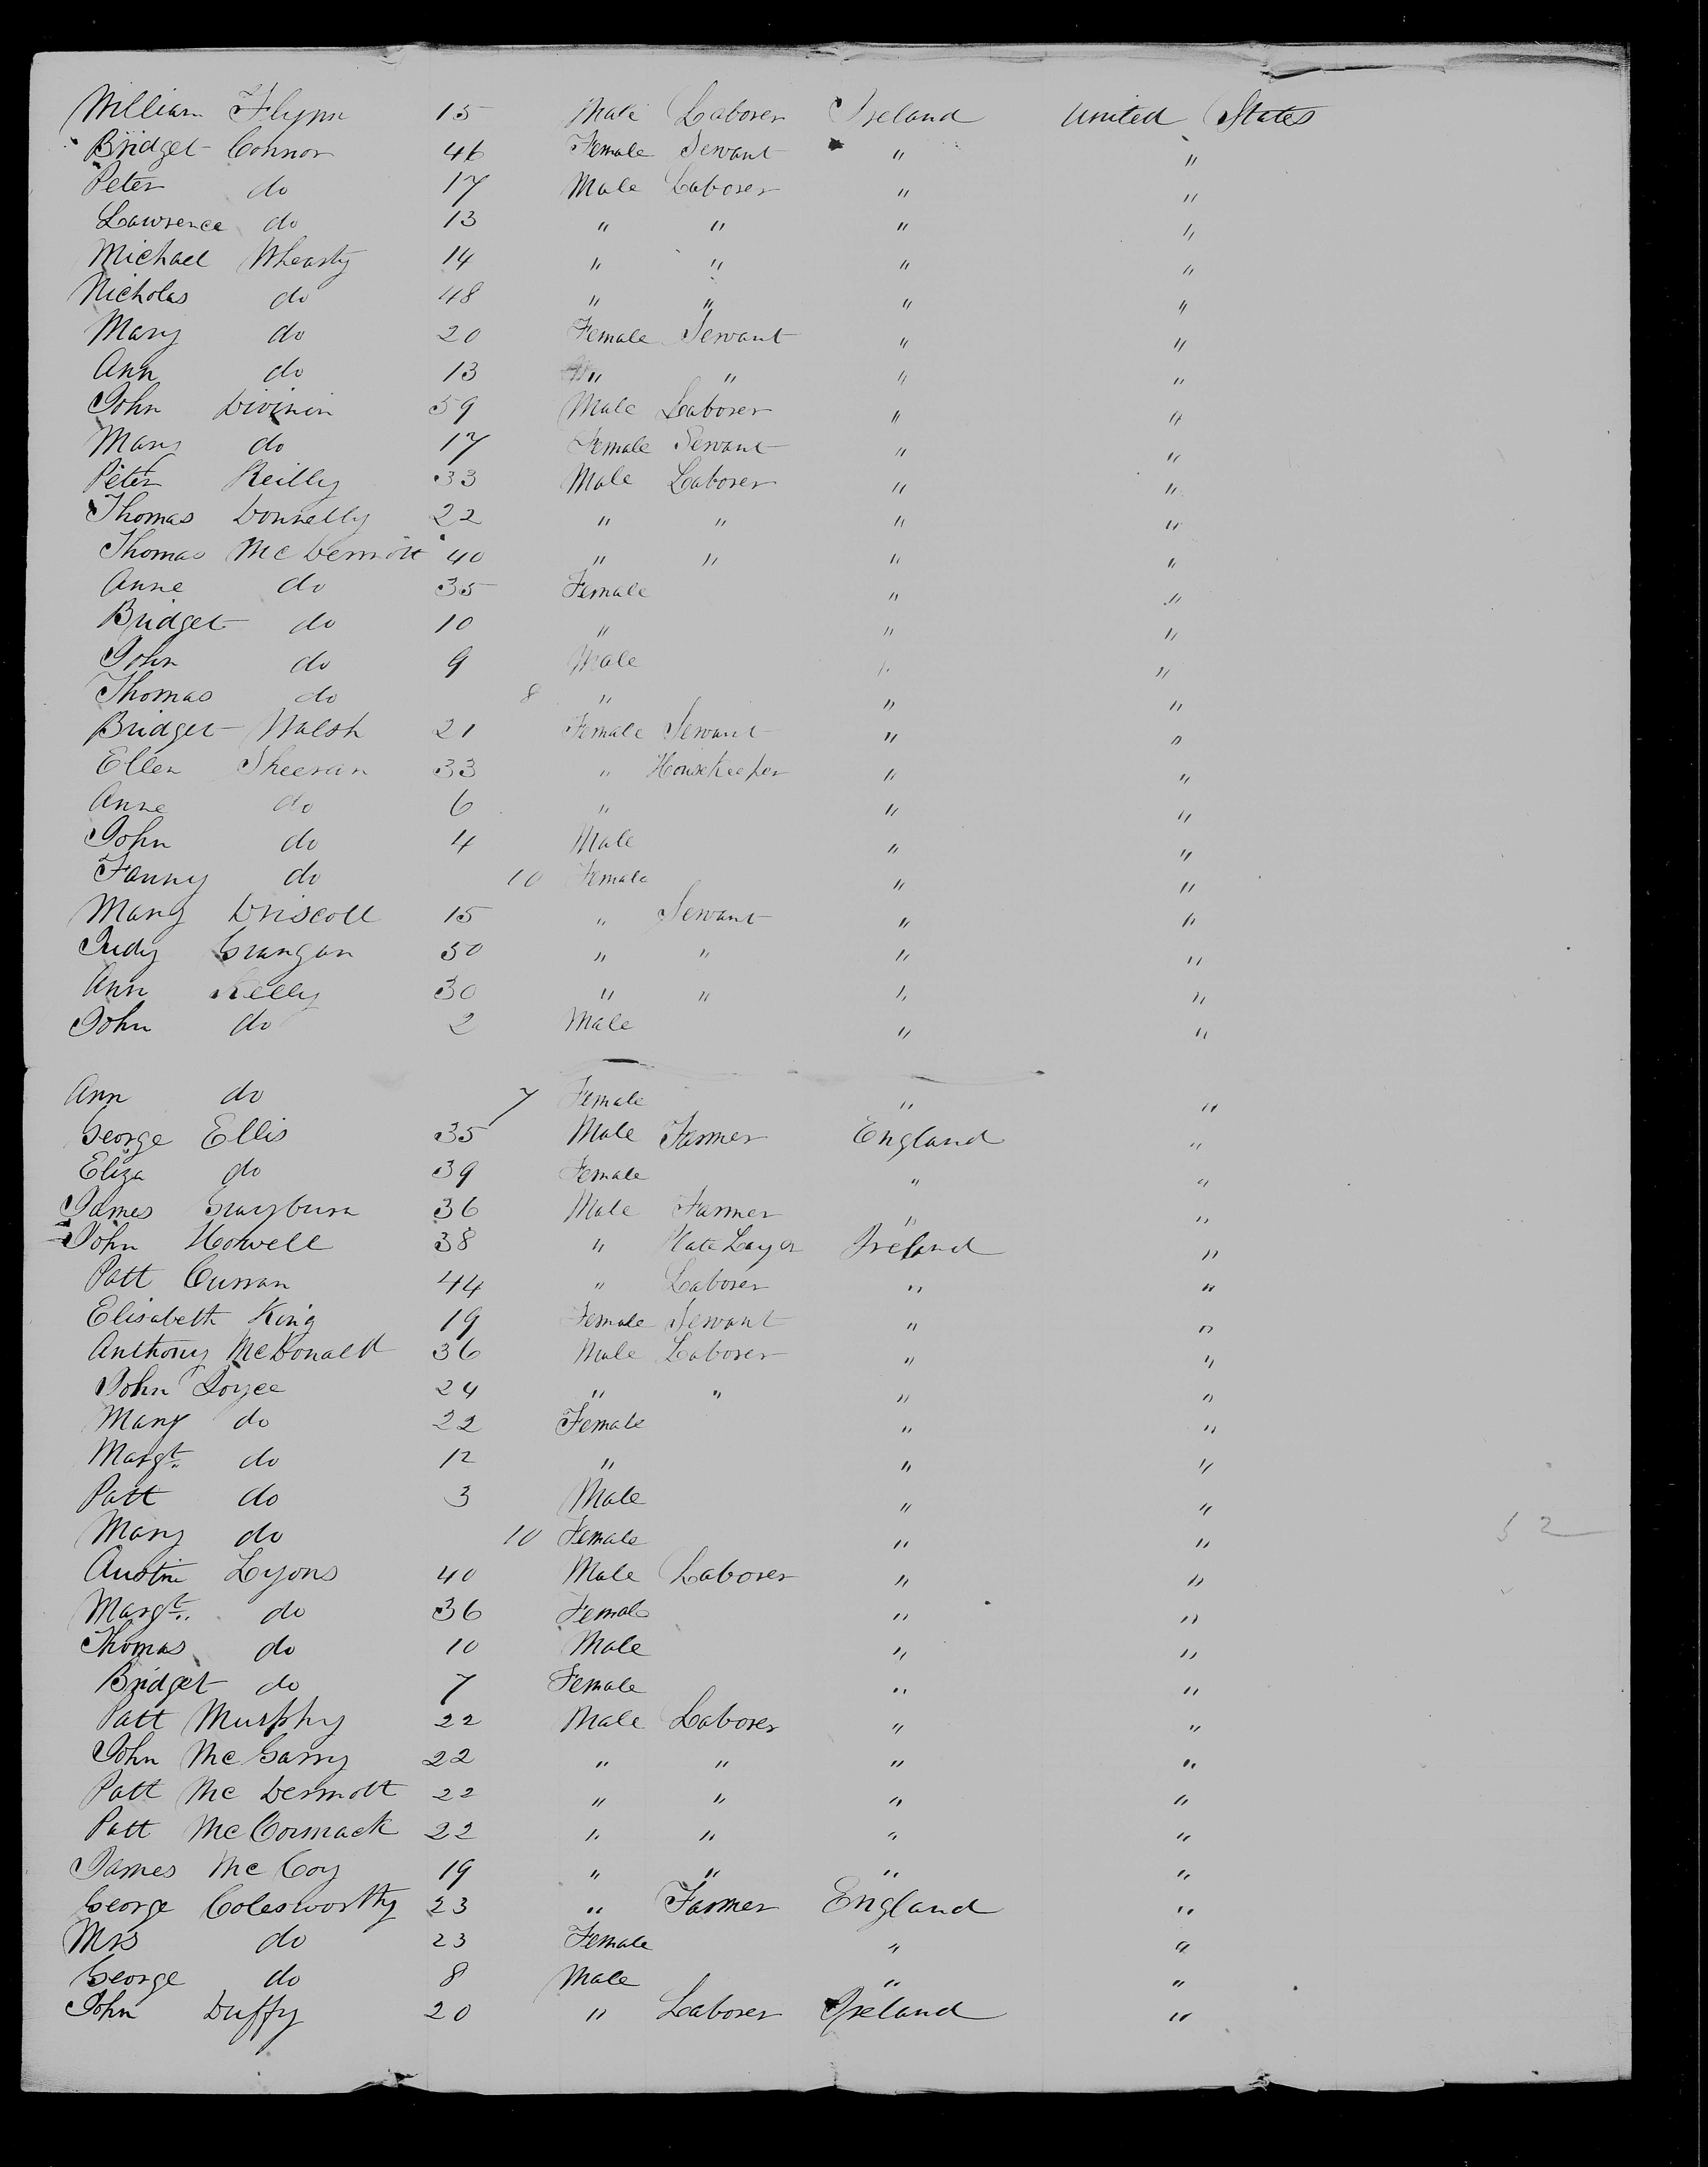 William Flynn 15 Male Laborer Ireland United States
Bridget Connor 46 Female Servant " "
Peter do 17 Male Laborer " "
Lawrence do 13 " " " "
Michael Whearty 14 " " " "
Nicholas do 48 " " " "
Mary do 20 Female Servant " "
Ann do 13 " " " "
John Divinin 59 Male Laborer " "
Mary do 17 Female Servant " "
Peter Reilly 33 Male Laborer " "
Thomas Donnelly 22 " " " "
Thomas McDermott 40 " " " "
Anne do 35 Female " "
Bridget do 10 " " "
John do 9 Male " "
Thomas do 8 " " "
Bridget Walsh 21 Female Servant " "
Ellen Sheeran 33 " HouseKeeper " "
Anne do 6 " " "
John do 4 Male " "
Fanny do 10 Female " "
Mary Driscoll 15 " Servant " "
Judy Grangan 30 " " " "
Ann Kelly 30 " " " "
John do 2 Male " "
Ann do 7 Female " "
George Ellis 35 Male Farmer England "
Eliza do 39 Female " "
James Grayburn 36 Male Farmer " "
John Howell 38 " Plate Layer Ireland "
Patt Curran 44 " Laborer " "
Elisabeth King 19 Female Servant " "
Anthony McDonald 36 Male Laborer " "
John Joyce 24 " " " "
Mary do 22 Female " "
Margt. do 12 " " "
Patt do 3 Male " "
Mary do 10 Female " "
Austin Lyons 40 Male Laborer " "
Margt. do 36 Female " "
Thomas do 10 Male " "
Bridget do 7 Female " "
Patt Murphy 22 Male Laborer " "
John McGarry 22 " " " "
Patt McDermott 22 " " " "
Patt McCormack 22 " " " "
James McCoy 19 " " " "
George Colesworthy 23 " Farmer England "
Mrs do 23 Female " "
George do 8 Male " "
John Duffy 20 " Laborer Ireland "